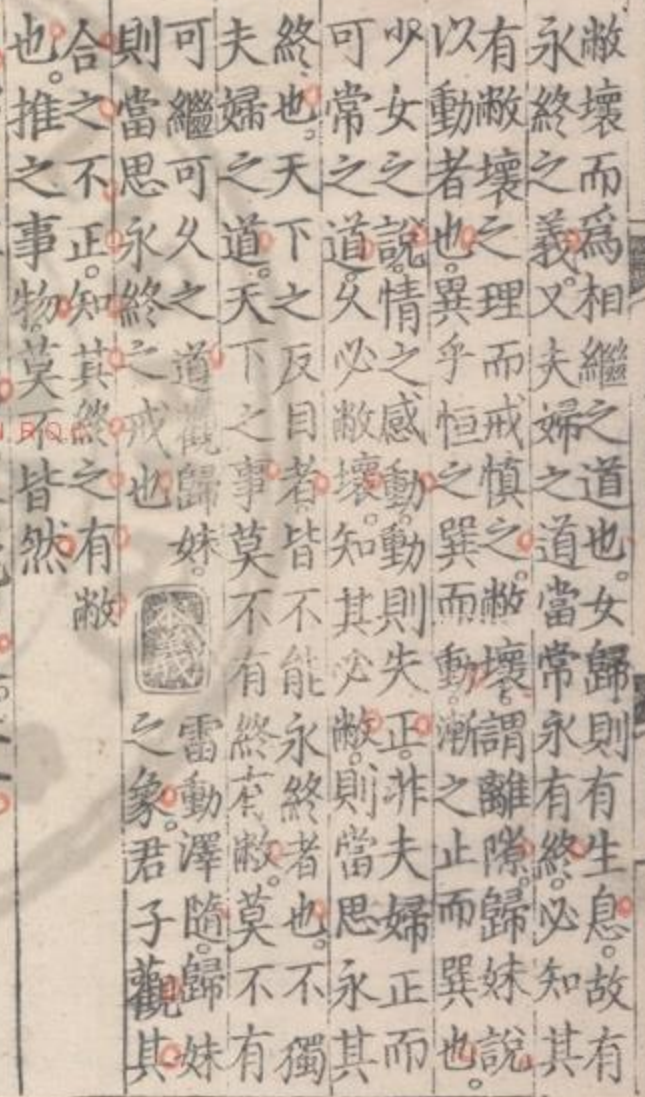 敝壞而爲相繼之道也。女歸則有生息。故有
永終之義。又夫婦之道當常永有終。必知其
有敝壞之理而戒慎之。敝壞。謂離隙。歸妹說
以動者也。異乎恒之巽而動。漸之止而巽也。
少女之說。情之感動。動則失正。非夫婦正而
可常之道。久必敝壞。知其必敝。則當思永其
終也。天下之反目者。皆不能永終者也。不獨
夫婦之道。天下之事莫不有終有敝。莫不有
可繼可久之道觀歸妹。
則當思永終之戒也
本義
雷動澤隨。歸妹
之象。君子觀其
合之不正。知其終之有敝
也。推之事物。莫不皆然